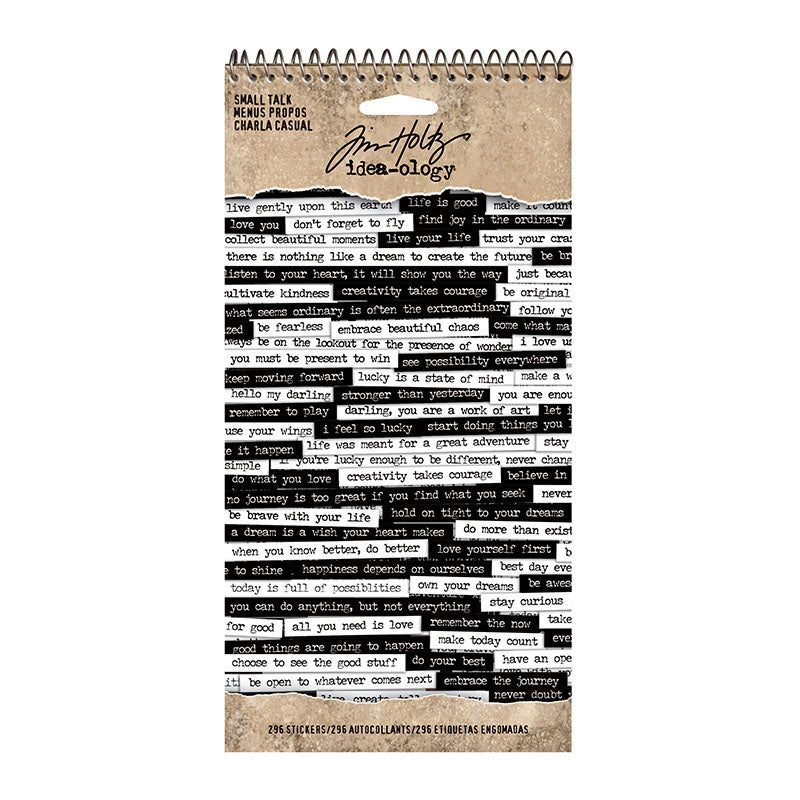 SMALL TALK
MENUS PROPOS
CHARLA CASUAL
Tim Holtz
idea-ology
live gently upon this earth life is good make it count
love you don't forget to fly find joy in the ordinary
collect beautiful moments live your life trust your craz
there is nothing like a dream to create the future be br
listen to your heart, it will show you the way just becau
cultivate kindness creativity takes courage be original
what seems ordinary is often the extraordinary follow yo
zed be fearless embrace beautiful chaos come what may
ways be on the lookout for the presence of wonder i love us
you must be present to win see possibility everywhere
keep moving forward lucky is a state of mind make a w
hello my darling stronger than yesterday you are enou
remember to play darling, you are a work of art let i
use your wings i feel so lucky start doing things you l
e it happen life was meant for a great adventure stay
simple if you're lucky enough to be different, never chang
do what you love creativity takes courage believe in
no journey is too great if you find what you seek never
be brave with your life hold on tight to your dreams
a dream is a wish your heart makes do more than exist
when you know better, do better love yourself first b
e to shine happiness depends on ourselves best day eve
today is full of possiblities own your dreams be awes
you can do anything, but not everything stay curious
for good all you need is love remember the now take
good things are going to happen make today count ever
choose to see the good stuff do your best have an ope
it be open to whatever comes next embrace the journey
live create tell never doubt
296 STICKERS/296 AUTOCOLLANTS/296 ETIQUETAS ENGOMADAS